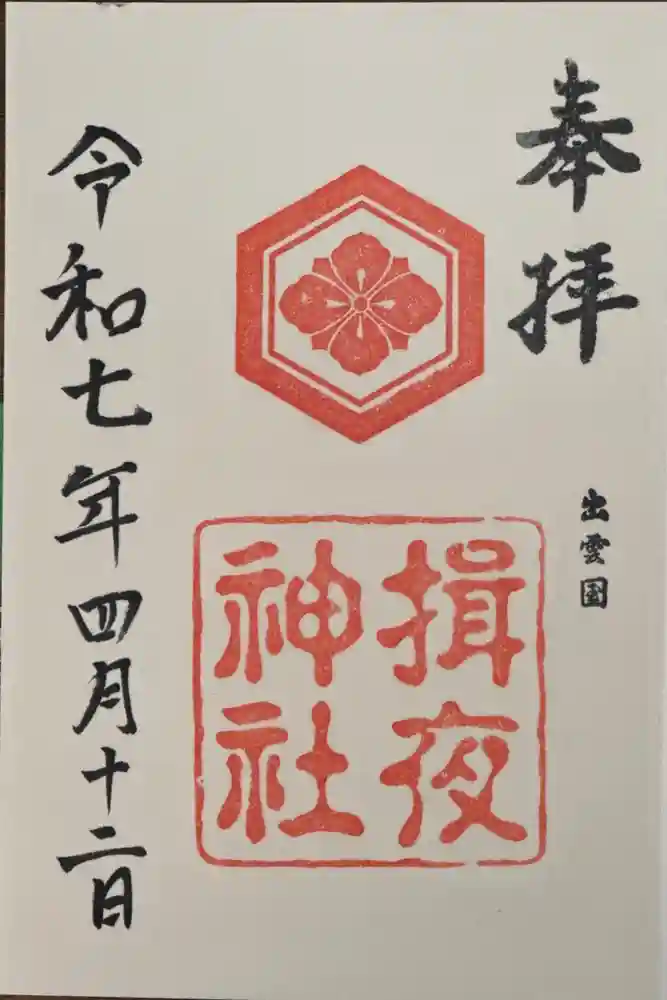 奉拝
出雲國
揖夜
神社
令和七年四月十二日